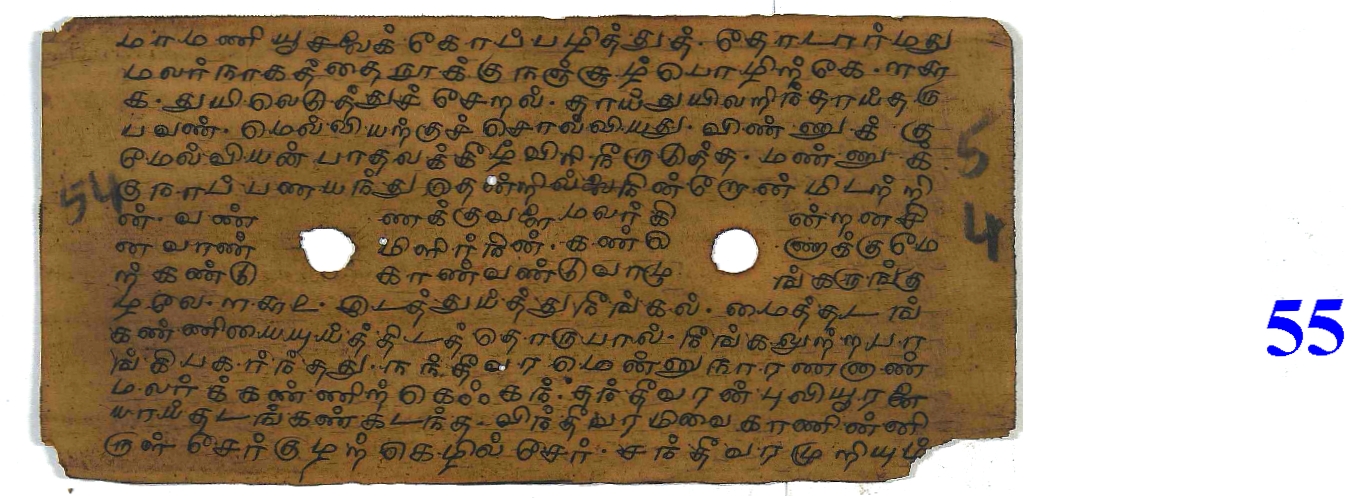 மாமணி யூசலைக் கோப்பழித்துத். தோடார்மது
மலர்நாகத்தைநூக்கு நஞ்சூழ் பொழிற்கே. ளசு
க. துயிலெடுத்துச் சேறல். தாய்துயிலறிந்தாய்தரு
பவண். மெல்லியற்குச் சொல்லியது. விண்ணுக் கு
மேல்வியன் பாதலக்கீழ்விரி நீருடுத்த. மண்ணுக்
கு நாப் பணயந்து தென்றில்லைநின்றோன் மிடற்றி
ன். வண் ணக்குவளை மலர்கி ன்றனசி
னவாண் மிளிர்நின். கண்ணொக்குமே
ற்கண்டு காண்வண்டுவாழு ங்கருங்கு
ழலே. ளசுஉ. இடத்துய்த்து நீங்கல். மைத்தடங்
கண்ணியையுய்த்திடத் தொருபால். நீங்கலுற்றபா
ங்கிபகர்ந்தது. நந்தீவரமென்னு நாரணனாண்
மலர்க்கண்ணிற் கெஃகந். தந்தீவரன்புலியூரனை
யாய்தடங்கண்கடந்த. விந்தீவரமிவை காணின்னி
ருள் சேர்குழற் கெழில் சேர். சந்தீவரமுறியும்
54
54
55